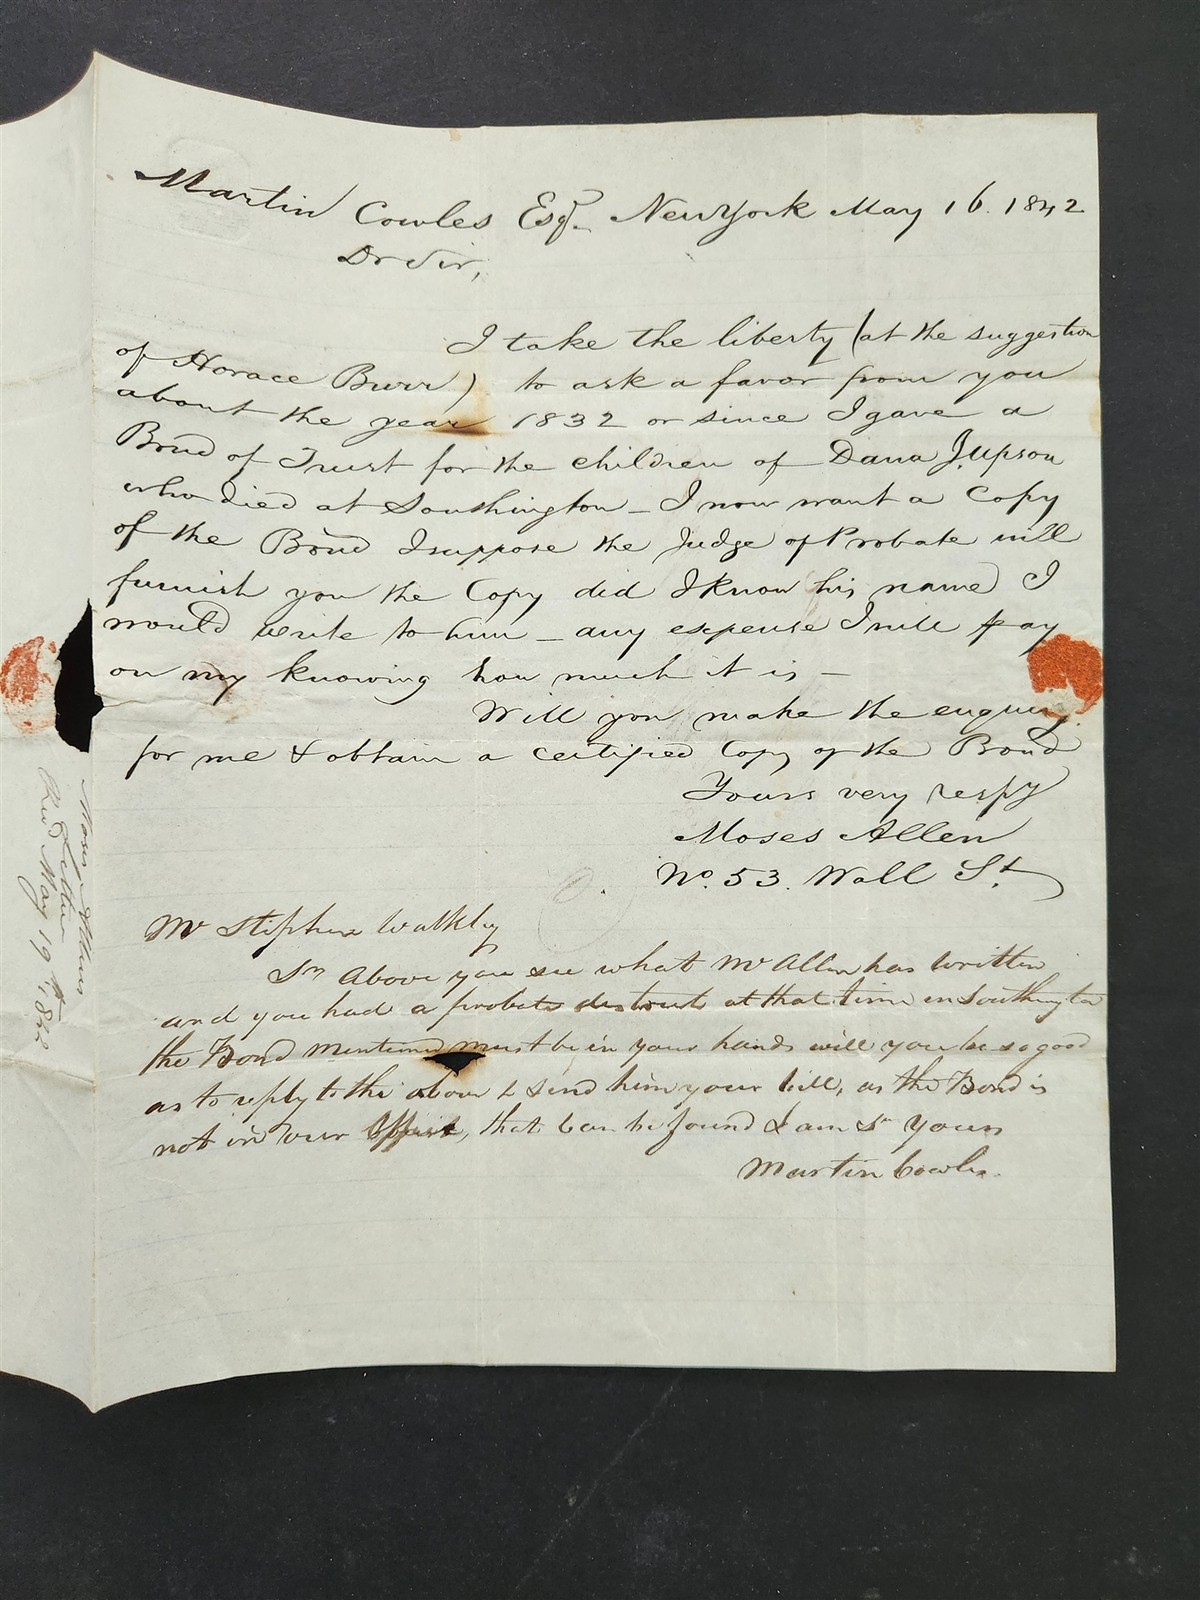 Martin Cowles Esqr. New York May 16. 1842
Dr Sir,
I take the liberty (at the suggestion
of Horace Burr) to ask a favor from you
about the year 1832 or since I gave a
Bond of Trust for the children of Dana J. Upson
who died at Southington _ I now want a Copy
of the Bond I suppose the Judge of Probate will
furnish you the Copy did I know his name I
would write to him _ any expense I will pay
on my knowing how much it is _
Will you make the enquiry
for me & obtain a certified Copy of the Bond
Yours very respy
Moses Allen
No. 53. Wall St.
Mr Stephen Walkley
Sr Above you see what Mr Allen has written
and you had a probate district at that time in Southington
the Bond mentioned must be in your hands will you be so good
as to reply to the above & send him your bill, as the Bond is
not in our office, that can be found I am Sr Yours
Martin Cowles.
Moses Allens
Letter
Recd May 19th 1842